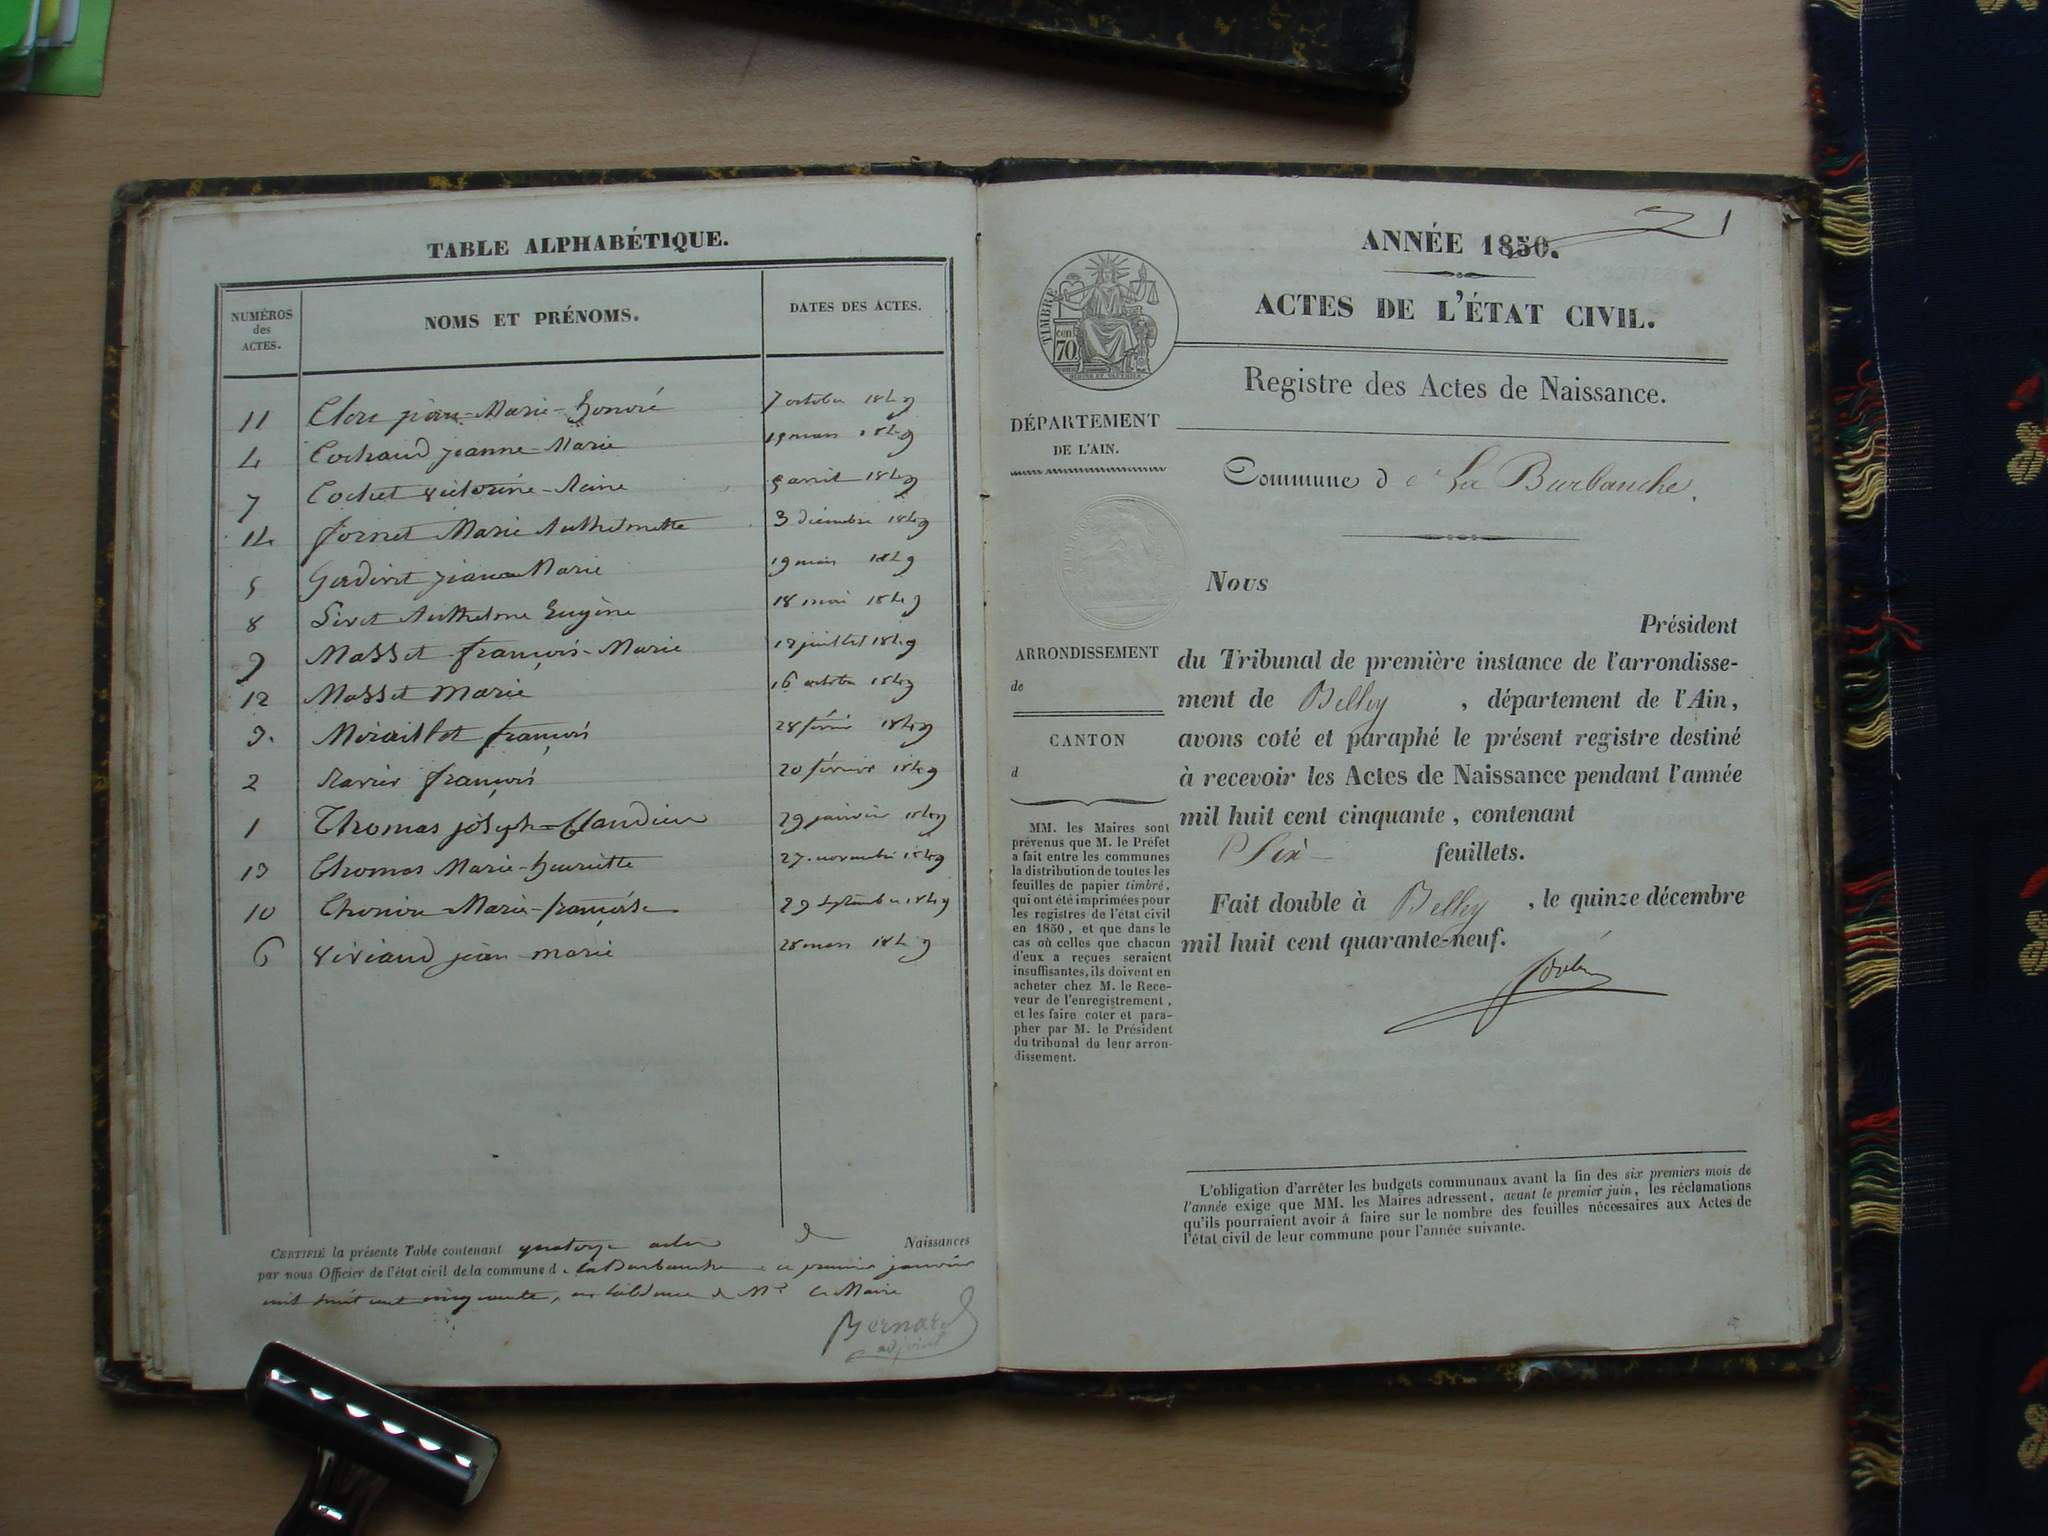 TABLE ALPHABÉTIQUE.
NUMÉROS des ACTES.
NOMS ET PRÉNOMS.
DATES DES ACTES.
11 Clerc jean-Marie-honoré 7 octobre 1849
4 Cochaud jeanne-Marie 19 mars 1849
7 Cochet victorine-Reine 5 avril 1849
14 fornet Marie Anthelmette 3 décembre 1849
5 jeanne Marie 19 mars 1849
8 Sivet Anthelme Eugène 18 mai 1849
9 Masset françois-Marie 12 juillet 1849
12 Masset marie 16 octobre 1849
3. Miraillet françois 28 février 1849
2 Ravier françois 20 février 1849
1 Thomas joseph-Claudius 29 janvier 1849
13 Thomas Marie-henriette 27 novembre 1849
10 Marie-françoise 29 septembre 1849
6 viviand jean-marie 28 mars 1849
CERTIFIÉ la présente Table contenant quatorze actes de Naissances
par nous Officier de l'état civil de la commune de la Burbanche ce premier janvier
mil huit cent cinquante, en l'absence de Mr le Maire
Bernard
adjoint
1
ANNÉE 1850.
ACTES DE L'ÉTAT CIVIL.
TIMBRE
cent 70
Registre des Actes de Naissance.
DÉPARTEMENT
DE L'AIN.
Commune de La Burbanche.
ARRONDISSEMENT
de
CANTON
d
MM. les Maires sont
prévenus que M. le Préfet
a fait entre les communes
la distribution de toutes les
feuilles de papier timbré,
qui ont été imprimées pour
les registres de l'état civil
en 1850, et que dans le
cas où celles que chacun
d'eux a reçues seraient
insuffisantes, ils doivent en
acheter chez M. le Rece-
veur de l'enregistrement,
et les faire coter et para-
pher par M. le Président
du tribunal de leur arron-
dissement.
Nous
Président
du Tribunal de première instance de l'arrondisse-
ment de Belley, département de l'Ain,
avons coté et paraphé le présent registre destiné
à recevoir les Actes de Naissance pendant l'année
mil huit cent cinquante, contenant
Six feuillets.
Fait double à Belley, le quinze décembre
mil huit cent quarante-neuf.
L'obligation d'arrêter les budgets communaux avant la fin des six premiers mois de
l'année exige que MM. les Maires adressent, avant le premier juin, les réclamations
qu'ils pourraient avoir à faire sur le nombre des feuilles nécessaires aux Actes de
l'état civil de leur commune pour l'année suivante.